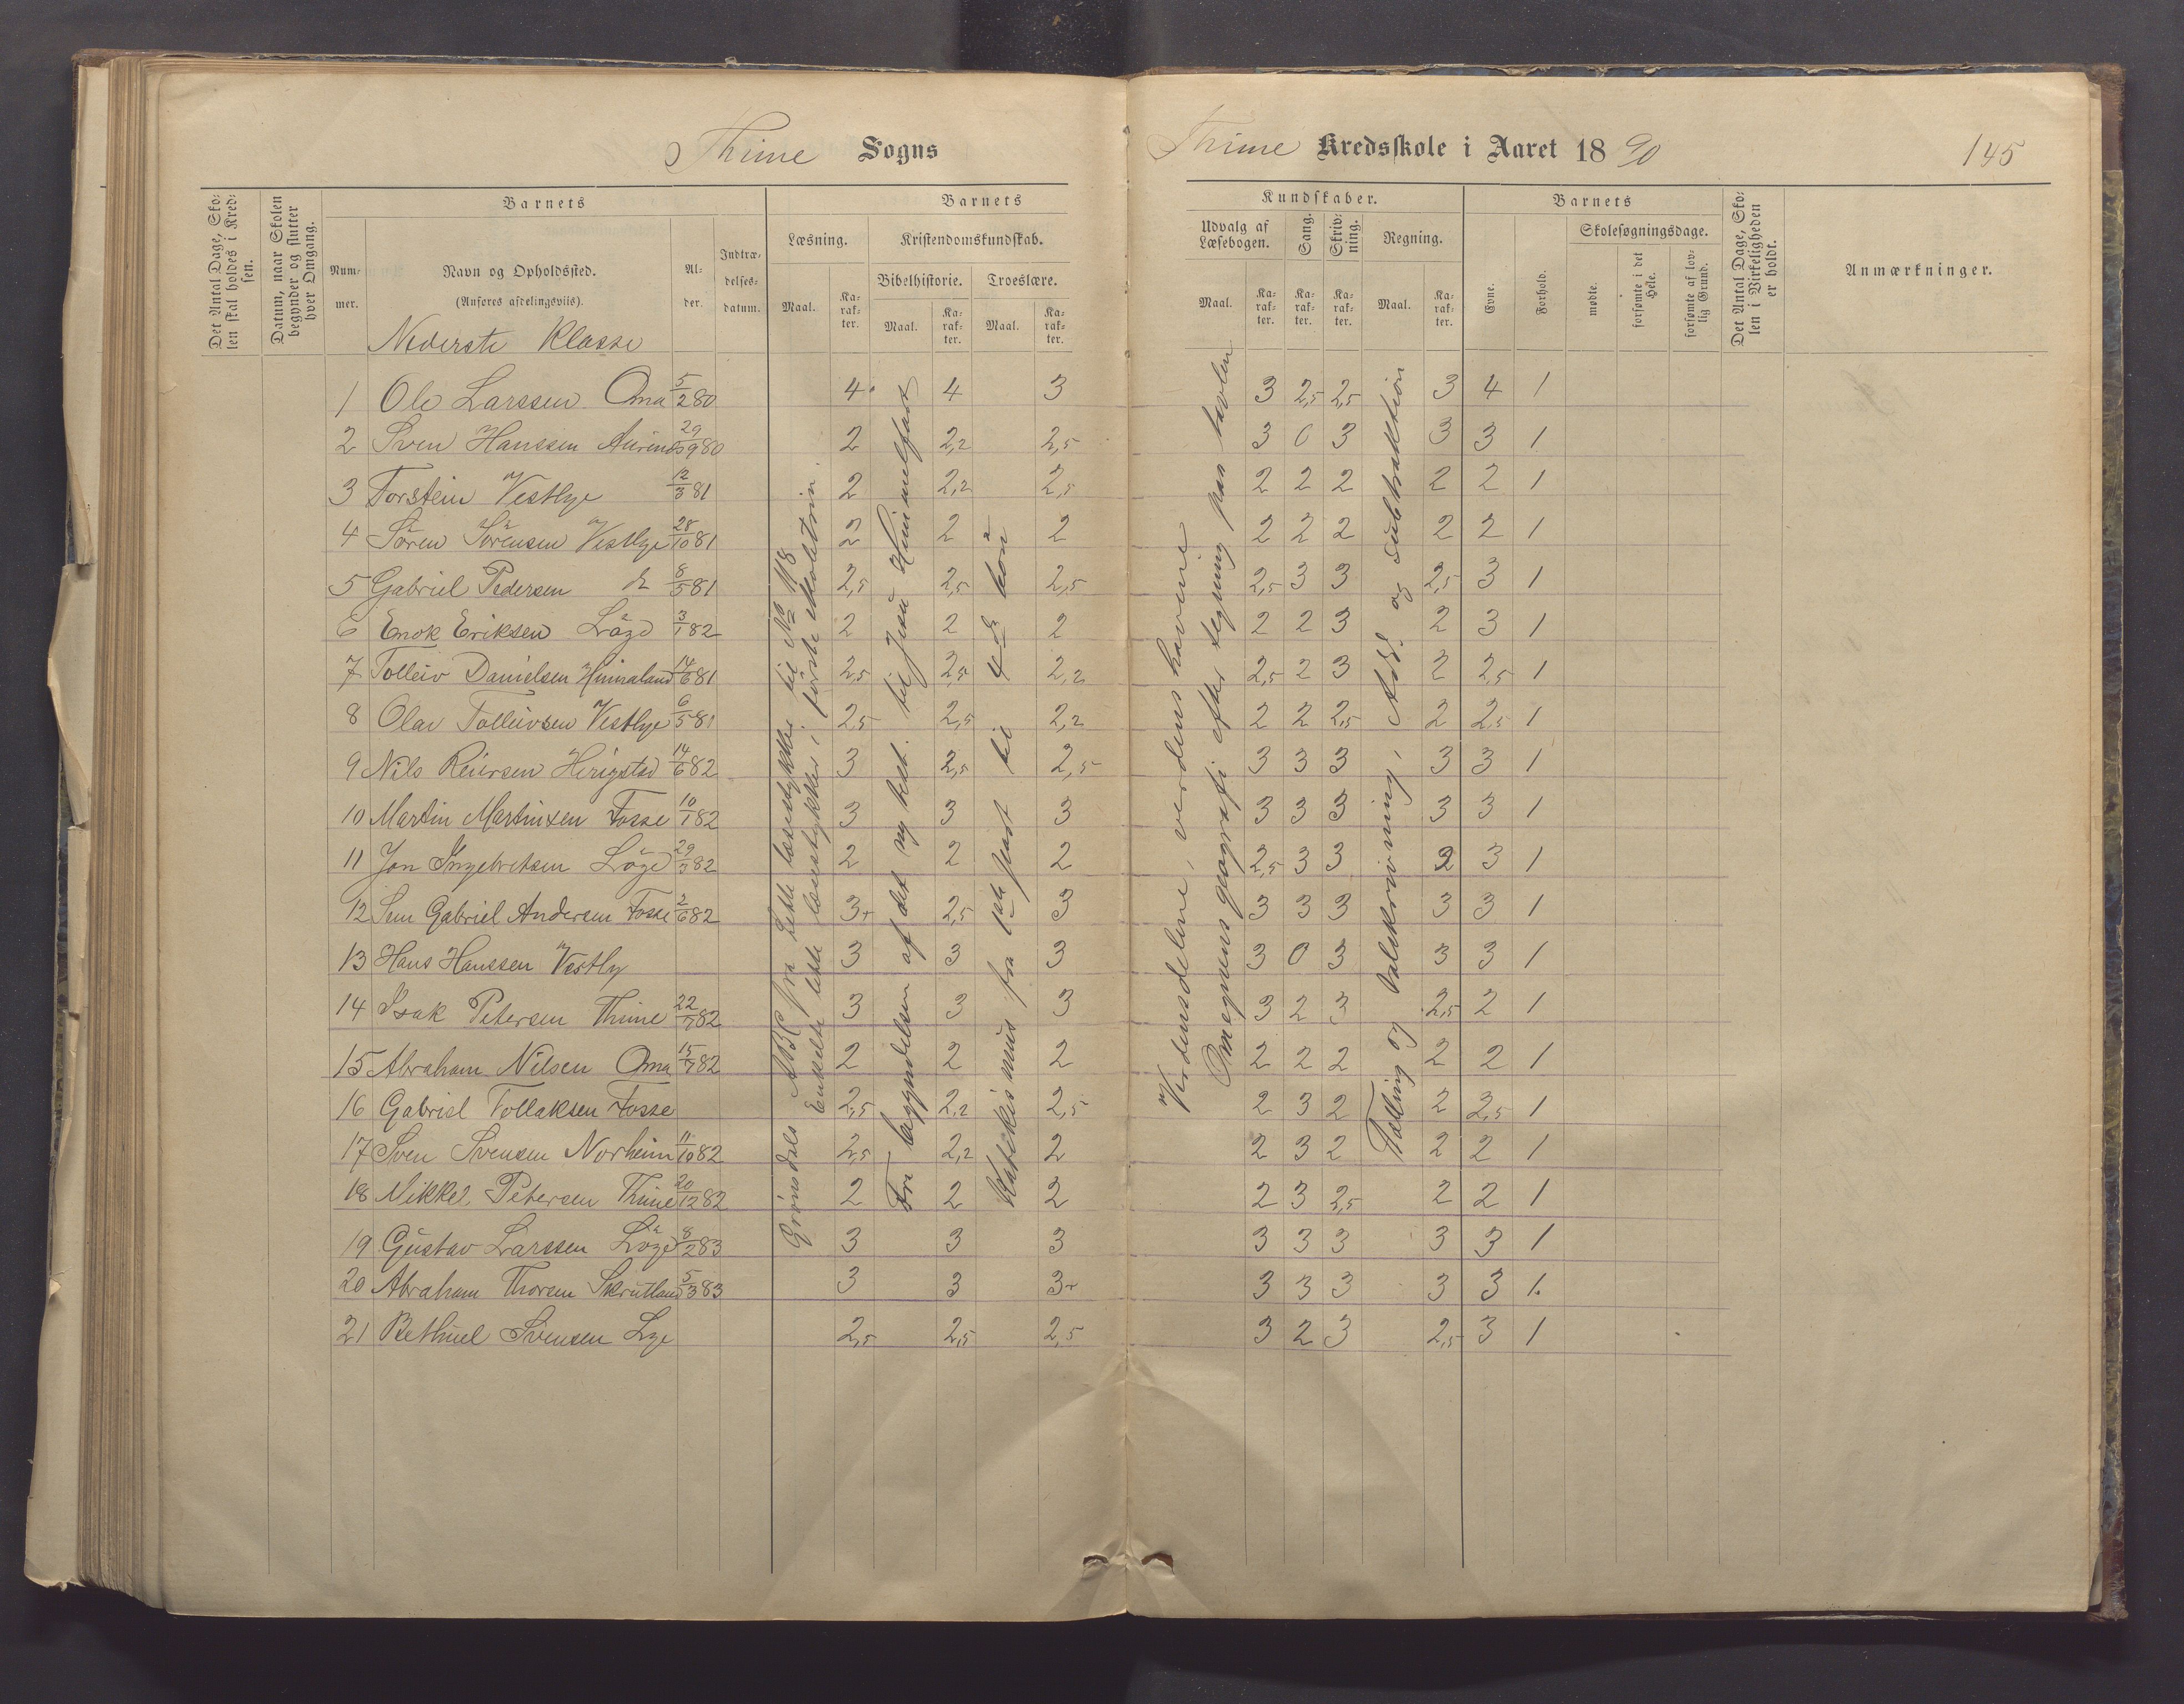 Thime Sogns
Thime Kredsskole i Aaret 1890
145
Det Antal Dage, Skolen skal holdes i Kredsen.
Datum, naar Skolen begynder og slutter hver Omgang.
Barnets
Nummer.
Navn og Opholdssted.
(Anføres afdelingsviis).
Alder.
Indtrædelsesdatum.
Barnets
Læsning.
Maal.
Karakter.
Kristendomskundskab.
Bibelhistorie.
Maal.
Karakter.
Troeslære.
Maal.
Karakter.
Kundskaber.
Udvalg af Læsebogen.
Maal.
Karakter.
Sang.
Karakter.
Skrivning.
Karakter.
Regning.
Maal.
Karakter.
Barnets
Evne.
Forhold.
Skolesøgningsdage.
mødte.
forsømte i det Hele.
forsømte af lovlig Grund.
Det Antal Dage, Skolen i Virkeligheden er holdt.
Anmærkninger.
Nederste Klasse
1 Ole Larssen Oma 5/2 80 4 4 3 3 2,5 2,5 3 4 1
2 Sven Hanssen 29/9 80 2 2,2 2,5 3 0 3 3 3 1
3 Torstein Vestlye 12/3 81 2 2,2 2,5 2 2 2 2 2 1
4 Sören Sörensen Vestlye 28/10 81 2 2 2 2 2 2 2 2 1
5 Gabriel Pedersen 8/5 81 2,5 2,5 2,5 2,5 3 3 2,5 3 1
6 Enok Eriksen Löge 3/1 82 2 2 2 2 2 3 2 3 1
7 Tolleiv Danielsen Hinnaland 14/6 81 2,5 2,5 2,2 2,5 2 3 2 2,5 1
8 Olav Tolleivsen Vestlye 6/5 81 2,5 2,5 2,2 2 2 2,5 2 2,5 1
9 Nils Reiersen Herigstad 14/6 82 3 2,5 2,5 3 3 3 3 3 1
10 Martin Martinsen Fosse 10/1 82 3 3 3 3 3 3 3 3 1
11 Jon Ingebretsen Löge 29/3 82 2 2 2 2,5 3 3 2 3 1
12 Gabriel Andersen Fosse 2/6 82 3+ 2,5 3 3 3 3 3 3 1
13 Hans Hanssen Vestly 3 3 3 3 0 3 3 3 1
14 Isak Petersen Thime 22/7 82 3 3 3 3 2 3 2,5 2 1
15 Abraham Nilsen Oma 15/7 82 2 2 2 2 2 2 2 2 1
16 Gabriel Tollaksen Fosse 2,5 2,2 2,5 2 3 2 2 2,5 1
17 Sven Svensen Norheim 11/10 82 2,5 2,2 2 2 3 2 2 2 1
18 Mikkel Petersen Thime 20/12 82 2 2 2 2 3 2,5 2 2 1
19 Gustav Larssen Löge 8/2 83 3 3 3 3 3 3 3 3 1
20 Abraham Thorsen Skrutland 5/3 83 3 3 3+ 3 3 3 3 3 1.
21 Bethuel Svensen Lye 2,5 2,5 2,5 3 2 3 2,5 3 1
Grønsdals ABC fra lette læsestykker til No 118
Enkelte lette læsestykker i første skoletrin
Fra begyndelsen af det ny test. til Jesu Himmelfart
Katekismus fra 1ste part til 4de bön
Verdensdelene, verdens havene
Omegnens geografi efter tegning paa tavlen
Tælling og talskrivning, Add. og subtraktion